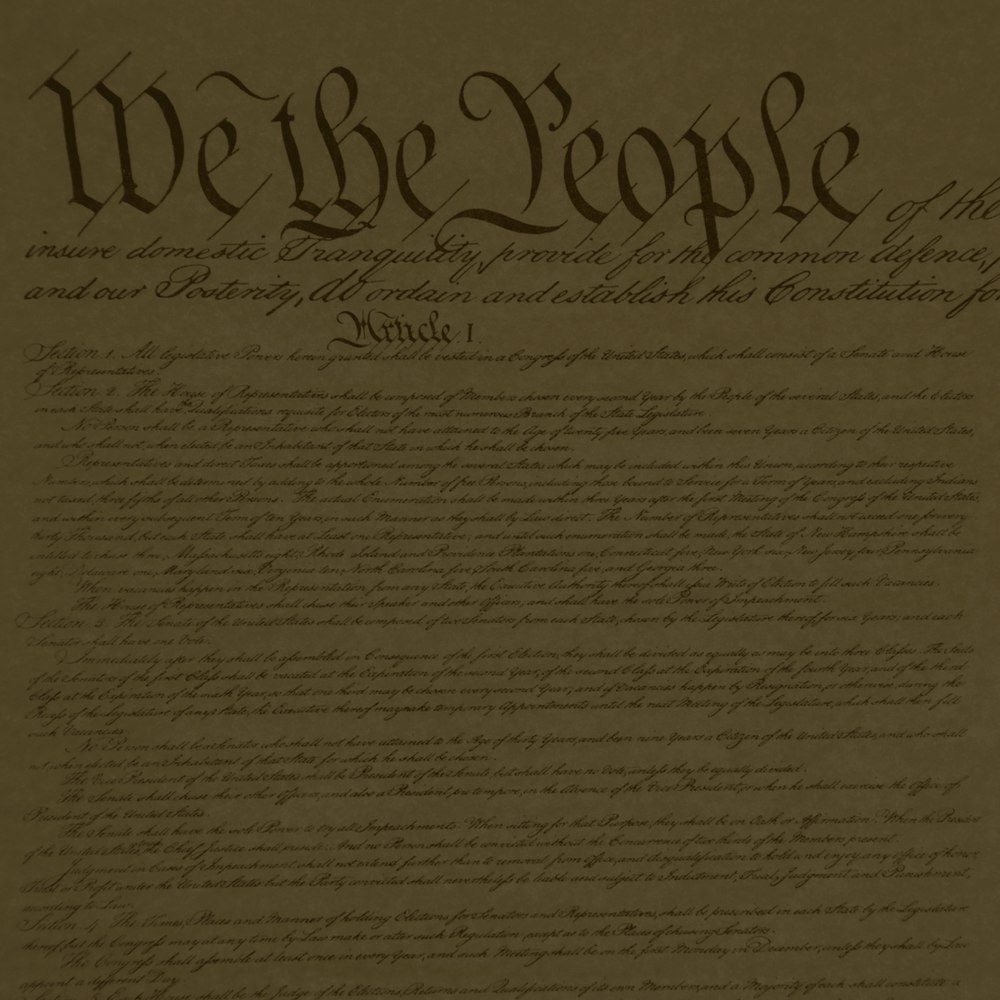 We the People of the
insure domestic Tranquility, provide for the common defence,
and our Posterity, do ordain and establish this Constitution for
Article. I.
Section. 1. All legislative Powers herein granted shall be vested in a Congress of the United States, which shall consist of a Senate and House
of Representatives.
Section. 2. The House of Representatives shall be composed of Members chosen every second Year by the People of the several States, and the Electors
in each State shall have the Qualifications requisite for Electors of the most numerous Branch of the State Legislature.
No Person shall be a Representative who shall not have attained to the Age of twenty five Years, and been seven Years a Citizen of the United States,
and who shall not, when elected, be an Inhabitant of that State in which he shall be chosen.
Representatives and direct Taxes shall be apportioned among the several States which may be included within this Union, according to their respective
Numbers, which shall be determined by adding to the whole Number of free Persons, including those bound to Service for a Term of Years, and excluding Indians
not taxed, three fifths of all other Persons. The actual Enumeration shall be made within three Years after the first Meeting of the Congress of the United States,
and within every subsequent Term of ten Years, in such Manner as they shall by Law direct. The Number of Representatives shall not exceed one for every
thirty Thousand, but each State shall have at Least one Representative; and until such enumeration shall be made, the State of New Hampshire shall be
entitled to chuse three, Massachusetts eight, Rhode Island and Providence Plantations one, Connecticut five, New York six, New Jersey four, Pennsylvania
eight, Delaware one, Maryland six, Virginia ten, North Carolina five, South Carolina five, and Georgia three.
When vacancies happen in the Representation from any State, the Executive Authority thereof shall issue Writs of Election to fill such Vacancies.
The House of Representatives shall chuse their Speaker and other Officers; and shall have the sole Power of Impeachment.
Section. 3. The Senate of the United States shall be composed of two Senators from each State, chosen by the Legislature thereof, for six Years; and each
Senator shall have one Vote.
Immediately after they shall be assembled in Consequence of the first Election, they shall be divided as equally as may be into three Classes. The Seats
of the Senators of the first Class shall be vacated at the Expiration of the second Year, of the second Class at the Expiration of the fourth Year, and of the third
Class at the Expiration of the sixth Year, so that one third may be chosen every second Year; and if Vacancies happen by Resignation, or otherwise, during the
Recess of the Legislature of any State, the Executive thereof may make temporary Appointments until the next Meeting of the Legislature, which shall then fill
such Vacancies.
No Person shall be a Senator who shall not have attained to the Age of thirty Years, and been nine Years a Citizen of the United States, and who shall
not, when elected, be an Inhabitant of that State for which he shall be chosen.
The Vice President of the United States shall be President of the Senate, but shall have no Vote, unless they be equally divided.
The Senate shall chuse their other Officers, and also a President pro tempore, in the Absence of the Vice President, or when he shall exercise the Office of
President of the United States.
The Senate shall have the sole Power to try all Impeachments. When sitting for that Purpose, they shall be on Oath or Affirmation. When the President
of the United States is tried, the Chief Justice shall preside: And no Person shall be convicted without the Concurrence of two thirds of the Members present.
Judgment in Cases of Impeachment shall not extend further than to removal from Office, and disqualification to hold and enjoy any Office of honor,
Trust or Profit under the United States: but the Party convicted shall nevertheless be liable and subject to Indictment, Trial, Judgment and Punishment,
according to Law.
Section. 4. The Times, Places and Manner of holding Elections for Senators and Representatives, shall be prescribed in each State by the Legislature
thereof; but the Congress may at any time by Law make or alter such Regulations, except as to the Places of chusing Senators.
The Congress shall assemble at least once in every Year, and such Meeting shall be on the first Monday in December, unless they shall by Law
appoint a different Day.
House shall be the Judge of the Elections, Returns and Qualifications of its own Members, and a Majority of each shall constitute a